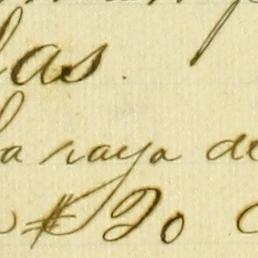 las.
la raya de
$ 20